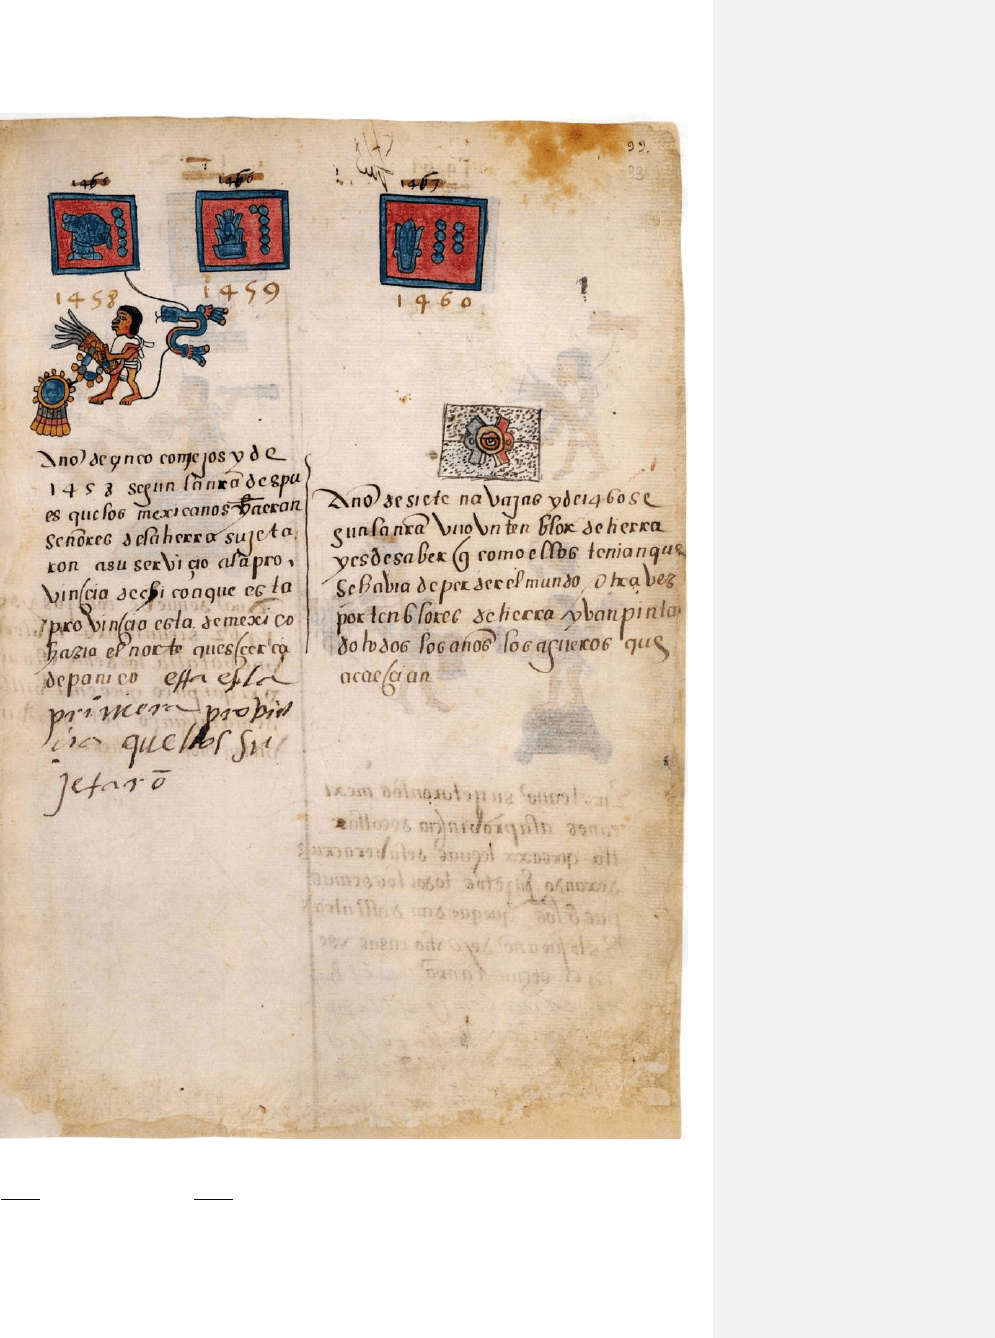 99.
33
1465
1466
1467
1458
1459
1460
Año de çinco conejos y de
1458 segun la nra despu
es que los mexicanos ha eran
señores de la tierra sujeta
ron a su serviçio a la pro,
vinçia de chi conque esta
provinçia esta de mexico
hazia el norte ques çerca
de panico esta es la
primera provin
cia que ellos su
jetarō
Año de siete navajas y de 1460 se
gun la nra vuo vn ten blor de tierra
y es de saber q como ellos tenian que
se havia de perder el mundo otra vez
por tenblores de tierra yvan pinta
do todos los años los agueros que
acaesçian